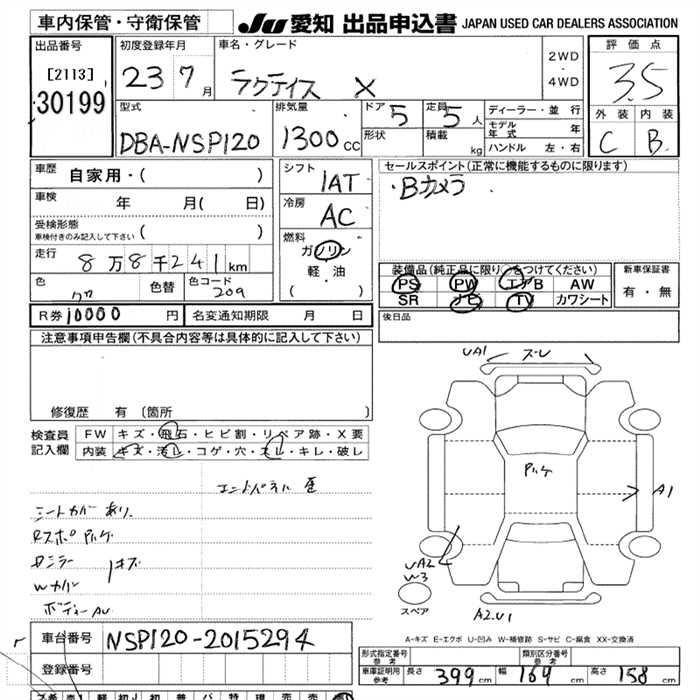 車内保管・守衛保管
JU 愛知 出品申込書 JAPAN USED CAR DEALERS ASSOCIATION
出品番号
[2113]
30199
初度登録年月
23 7 月
車名・グレード
ラクティス X
2WD
・
4WD
評価点
3.5
外装 内装
C B
型式
DBA-NSP120
排気量
1300 cc
ドア 5
形状
定員 5 人
積載 kg
ディーラー・並行
モデル年式 年
ハンドル 左・右
車歴 自家用・( )
車検 年 月( 日)
受検形態
車検付きのみ記入して下さい ( )
走行 8万8千241km
色 色替 色コード 209
シフト
IAT
冷房
AC
燃料
ガソリン
軽・油
( )
セールスポイント(正常に機能するものに限ります)
・Bカメラ
装備品(純正品に限り○をつけてください)
PS PW エアB AW
SR ナビ TV カワシート
新車保証書
有・無
R券 10000 円 名変通知期限 月 日
後日品
注意事項申告欄(不具合内容等は具体的に記入して下さい)
修復歴 有 〔箇所 〕
検査員記入欄
FW キズ・飛石・ヒビ割・リペア跡・X要
内装 キズ・汚レ・コゲ・穴・スレ・キレ・破レ
シートカバーあり
キズ
Wカバー
UA1 ズレ
A1
UA2
W3
スペア
A2.U1
A-キズ E-エクボ U-凹み W-補修跡 S-サビ C-腐食 XX-交換済
車台番号 NSP120-2015294
登録番号
形式指定番号 参考
類別区分番号 参考
車庫証明用 参考 長さ 399cm 幅 169cm 高さ 158cm